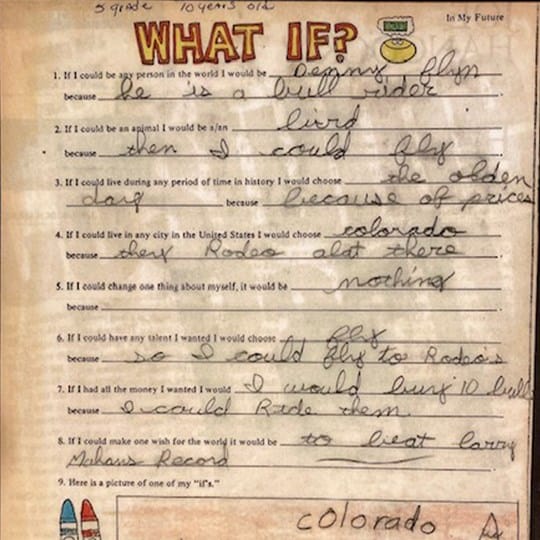 5 grade 10 years old
In My Future
WHAT IF?
1. If I could be any person in the world I would be Denny Flyn
because he is a bull rider
2. If I could be an animal I would be a/an bird
because then I could fly
3. If I could live during any period of time in history I would choose the olden
days because because of prices
4. If I could live in any city in the United States I would choose colorado
because they Rodeo alot there
5. If I could change one thing about myself, it would be nothing
because
6. If I could have any talent I wanted I would choose fly
because so I could fly to Rodeo's
7. If I had all the money I wanted I would I would buy 10 bulls
because I could Ride them.
8. If I could make one wish for the world it would be to beat larry
Mahans Record
9. Here is a picture of one of my "if's."
colorado